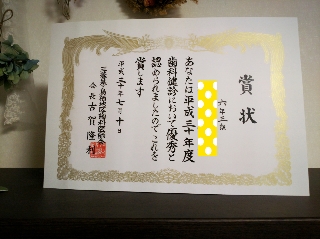 賞状
六年三組
あなたは平成三十年度
歯科健診において優秀と
認められましたのでこれを
賞します
平成三十年七月十日
会長 古賀隆利